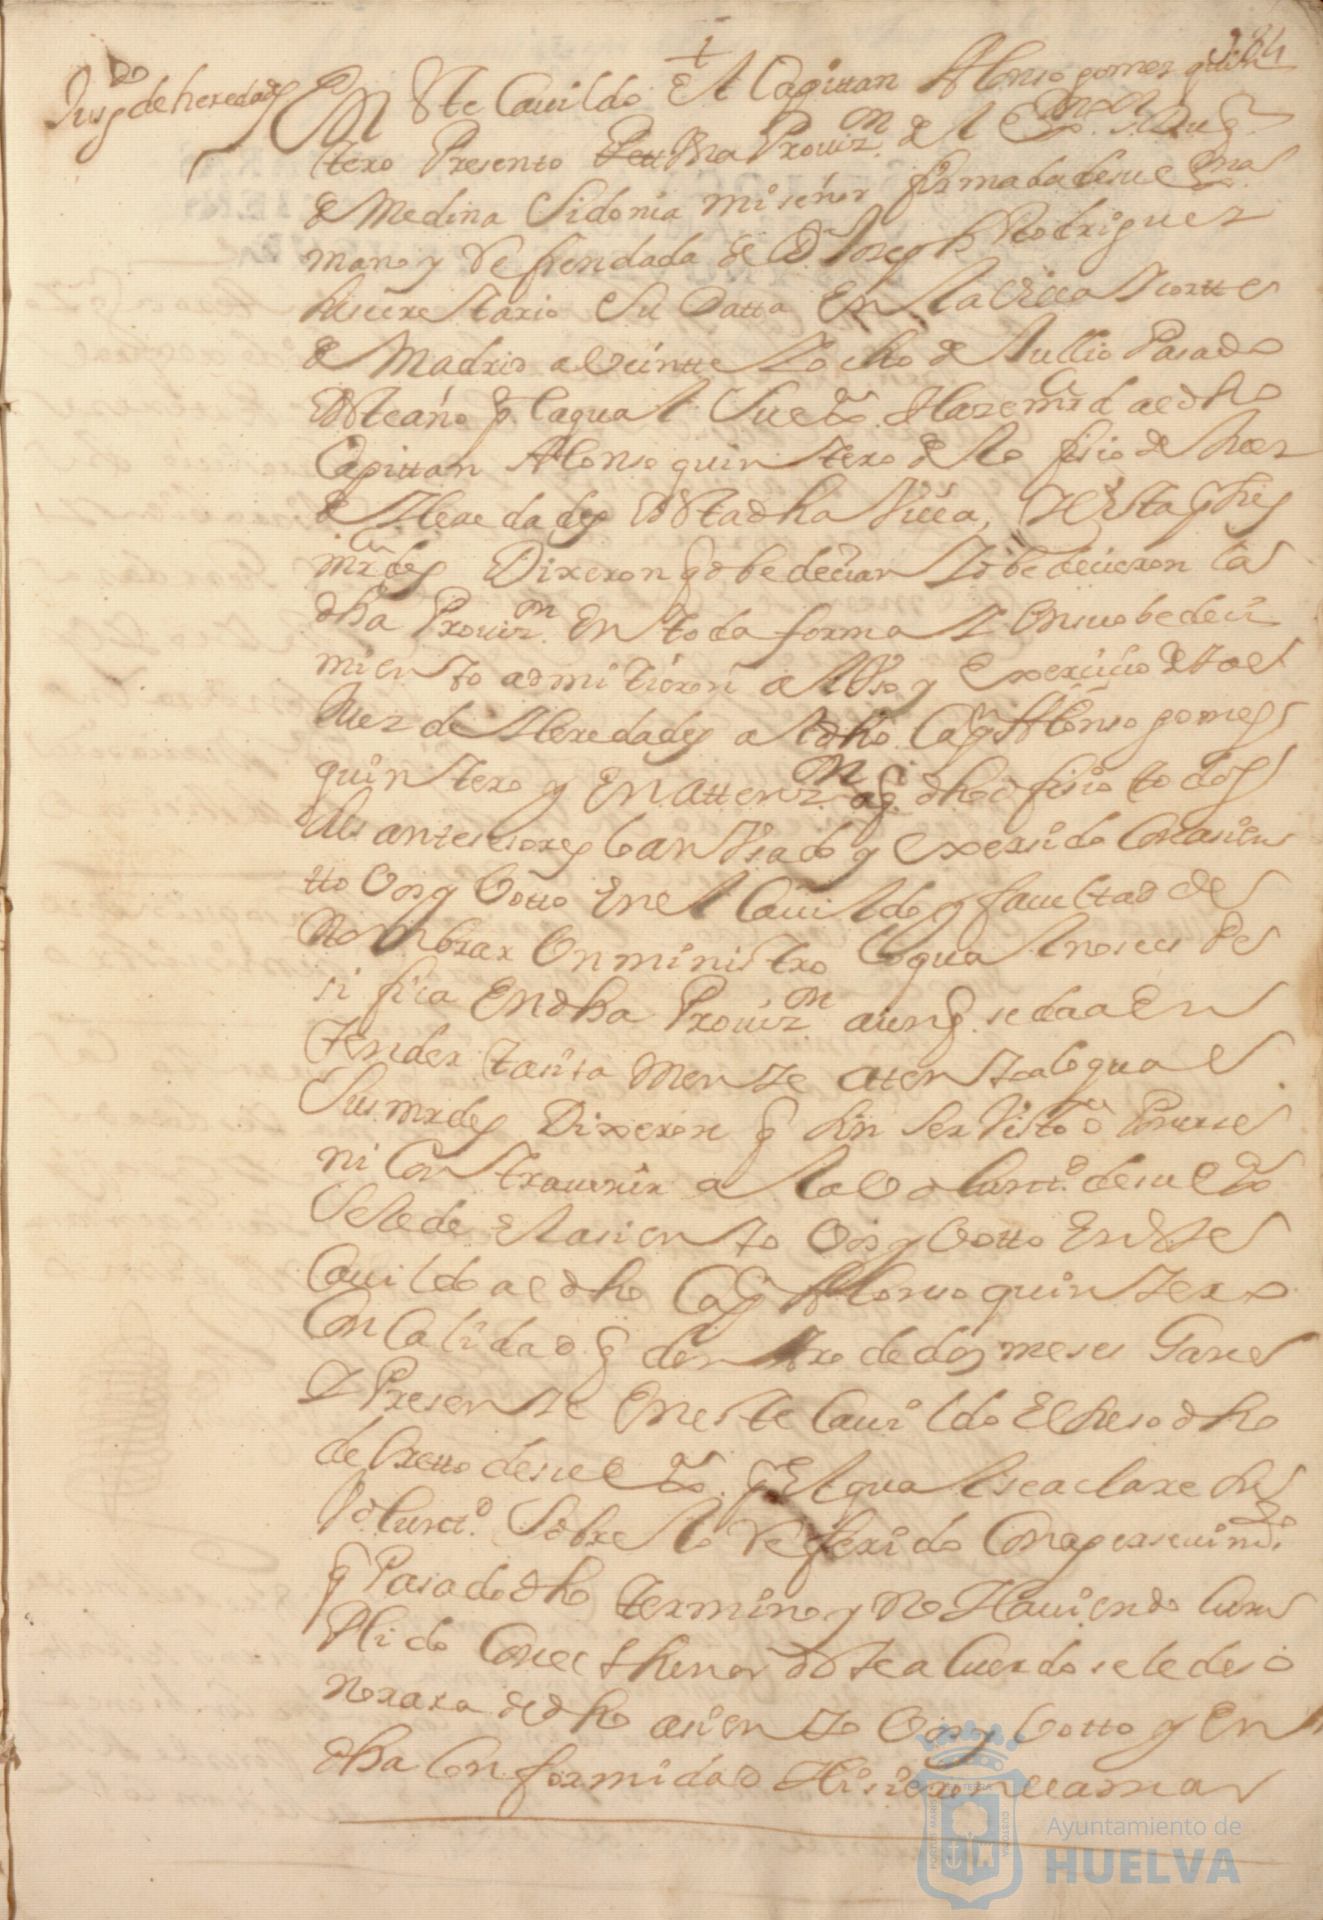 184
Jusg.do de heredades
En Este Cavildo El Capittan Alonso gomez quin
tero Presento Una Provizn. de el Exmo. Sr. Duq
de Medina Sidonia mi señor firmada de su Exma.
mano y Refrendada de D. Joseph Rodriguez
su secrestario Su Datta En la Villa y Cortte
de Madrid a Veintte y ocho de Jullio Pasado
deste año p. la qual Su exa. Haze mrd. al dho
Capittan Alonso quintero de lo fisio de Juez
de Heredades desta dha Villa, Y Vista p. sus
mrdes Dixeron q obedecian y obedecieron la
dha Provizn. En toda forma y En su obedeci
miento admitieron al Uso y Exercicio de tal
Juez de Heredades a el dho Cap. Alonso gomes
quintero y En attenzn. a q. dho ofisio todos
sus antesesores lo an Usado y exersido Con asien
tto Vos y Votto En el Cavildo y facultad de
Nombrar Un ministro lo qual no se es pe
si fica En dha Provizn. aunq. se da a En
tender tasita mente atento a lo qual
Sus mrdes Dixeron q sin ser Visto oPonerse
ni Contravenir a la Volunt.d de su exa.
Se le de El asiento Vos y Votto En Este
Cavildo al dho Cap. Alonso quintero
Con Calidad q dentro de dos meses Gane
y Presente En este Cavildo El suso dho
decretto de su exa. p. El qual se aclare su
Volunt.d Sobre lo Referido Con apersevim.to
q Pasado dho termino y no Haviendo Cum
Plido Con el thenor deste acuerdo se le des o
norara de dho asiento Vos y Votto y En
dha Conformidad Hisieron llamar
Ayuntamiento de
HUELVA